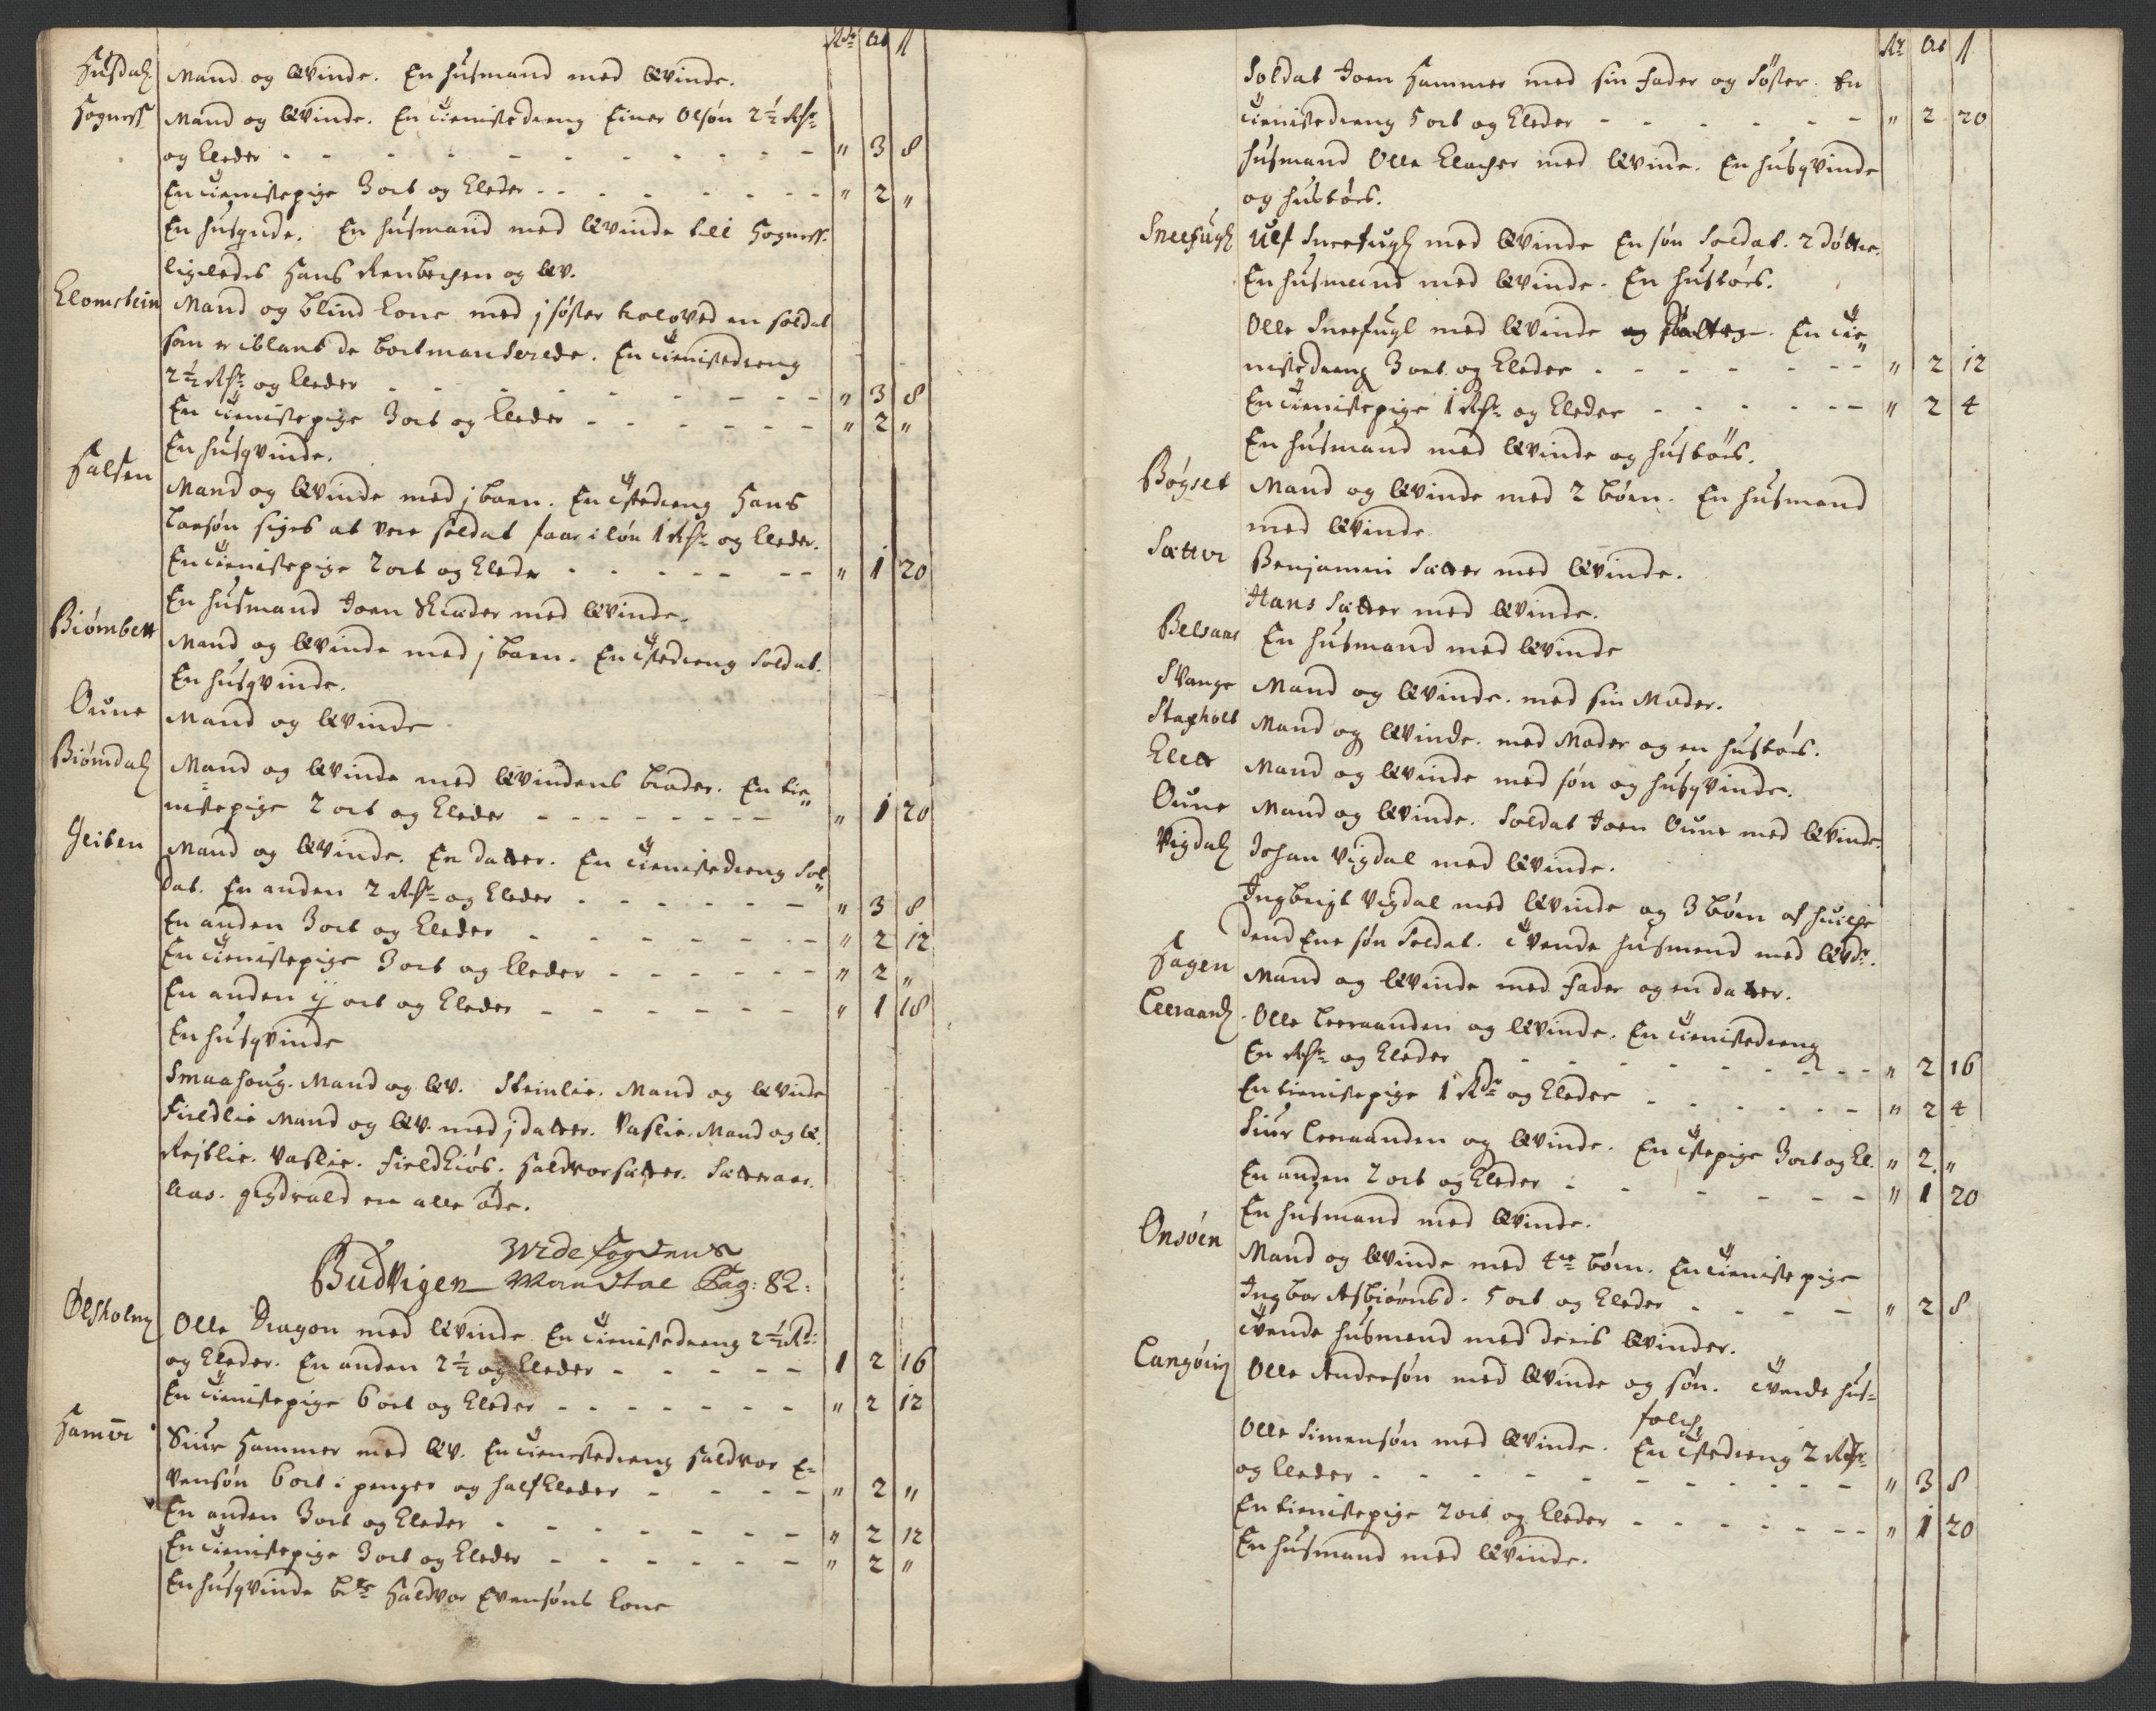 Rdr ort ß
Husdal Mand og Qvinde. En husmand med Qvinde.
Hogness Mand og Qvinde. En tienistedreng Einer Olsøn 2½ Rdr
og Kleder - - - " 3 8
En tienistepige 3 ort og Kleder - - - " 2 "
En husqvinde. En husmand med Qvinde till Hogness.
ligeledes Hans Renbechen og Qv.
Klomstein Mand og blind Kone med j søster troloved en soldat
som er iblant de bortmanderede. En tienistedreng
2½ Rdr og Kleder - - - " 3 8
En tienistepige 3 ort og Kleder - - - " 2 "
En husqvinde.
Halsen Mand og Qvinde med j barn. En tistedreng Hans
Larsøn siges at vere soldat faar i løn 1 Rdr og Kleder.
En tienistepige 2 ort og Kleder - - - " 1 20
En husmand Joen Skræder med Qvinde.
Biørnbett Mand og Qvinde med j barn. En tistedreng Soldat.
En husqvinde.
Oune Mand og Qvinde
Biørndal Mand og Qvinde med Qvindens broder. En tie„
nistepige 2 ort og Kleder - - - " 1 20
Geiten Mand og Qvinde. En datter. En tienistedreng Sol„
dat. En anden 2 Rdr og Kleder - - - " 3 8
En anden 3 ort og Kleder - - - " 2 12
En tienistepige 3 ort og Kleder - - - " 2 "
En anden ij ort og Kleder - - - " 1 18
En husqvinde
Smaahoug. Mand og Qv. Steinlie. Mand og Qvinde
Fieldlie Mand og Qv. med j datter. Vaslie. Mand og Q.
Rejslie. Vaslie. Fieldkiøs. Haldvorsætter. Sætteraas.
Aas. ere alle øde.
Budvigen Vide fogdens Mandtal Pag: 82:
Ølsholm Olle Dragon med Qvinde En tienistedreng 2½ Rd:
og Kleder. En anden 2½ og Kleder - - - 1 2 16
En tienistepige 6 ort og Kleder - - - " 2 12
Hamer Siur Hammer med Qv. En tienistedreng Haldvor E=
vensøn 6 ort i penger og half Kleder - - - " 2 "
En anden 3 ort og Kleder - - - " 2 12
En tienistepige 3 ort og Kleder - - - " 2 "
En husqvinde Haldvor Evensøns Kone
Rdr ort ß
Soldat Joen Hammer med sin fader og Søster. En
tienistedreng 5 ort og Kleder - - - " 2 20
husmand Olle Klacher med Qvinde. En husqvinde
og hustøes.
Sneefugl Ulf Sneefugl med Qvinde En søn Soldat. 2 døttre.
En husmand med Qvinde. En hustøes.
Olle Sneefugl med Qvinde og datter. En tie„
nistedreng 3 ort og Kleder - - - " 2 12
En tienistepige 1 Rdr og Kleder - - - " 2 4
En husmand med Qvinde og hustøes.
Bøgset Mand og Qvinde med 2 børn. En husmand
med Qvinde
Sætter Benjamin Sætter med Qvinde.
Hans Sætter med Qvinde.
Belsaas En husmand med Qvinde
Svange Mand og Qvinde. med sin Moder.
Stapholt Mand og Qvinde. med Moder og en hustøes.
Klett Mand og Qvinde med søn og husqvinde.
Oune Mand og Qvinde. Soldat Joen Oune med Qvinde.
Vigdal Johan Vigdal med Qvinde.
Ingbrigt Vigdal med Qvinde og 3 børn af huilche
dend Ene søn Soldat. Tvende husmend med Qvdr.
Hagen Mand og Qvinde med Fader og en datter.
Leeraand Olle Leeraanden og Qvinde. En tienistedreng
En Rdr og Kleder - - - " 2 16
En tienistepige 1 Rdr og Kleder - - - " 2 4
Siur Leeraanden og Qvinde. En tistepige 3 ort og Kl. " 2 "
En anden 2 ort og Kleder - - - " 1 20
En husmand med Qvinde.
Onsøen Mand og Qvinde med 4re børn. En tienistepige
Ingbor Asbiørnsd. 5 ort og Kleder - - - " 2 8
Tvende husmend med deris Qvinder.
Langørin Olle Andersøn med Qvinde og søn. Tvende hus=
folch.
Olle Simensøn med Qvinde. En tistedreng 2 Rdr
og Kleder - - - " 3 8
En tienistepige 2 ort og Kleder - - - " 1 20
En husmand med Qvinde.